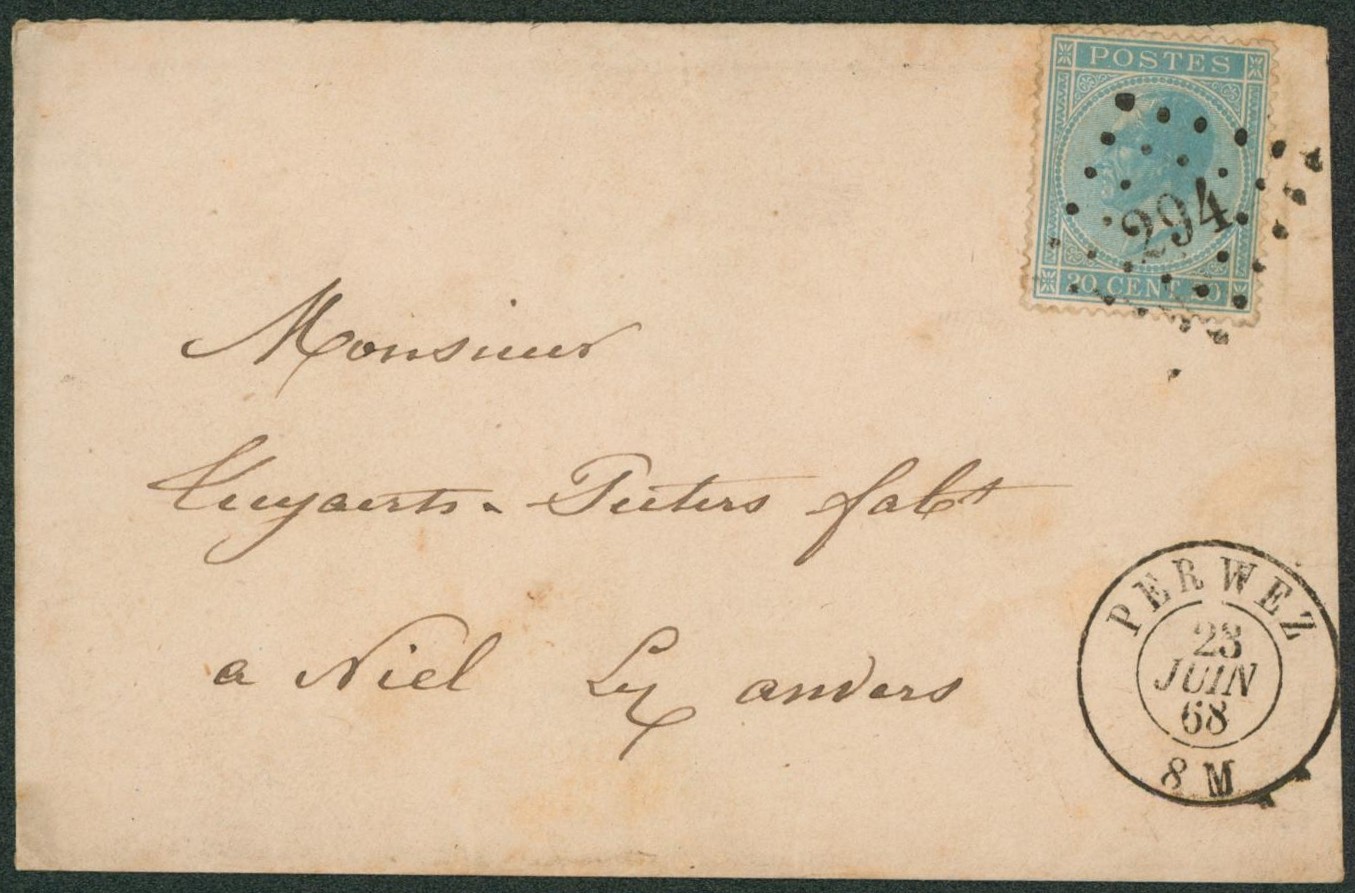 POSTES
294
20 CENT. 20
Monsieur
Tuyaerts-Pieters fabt
a Niel Lez anvers
PERWEZ
23
JUIN
68
8 M